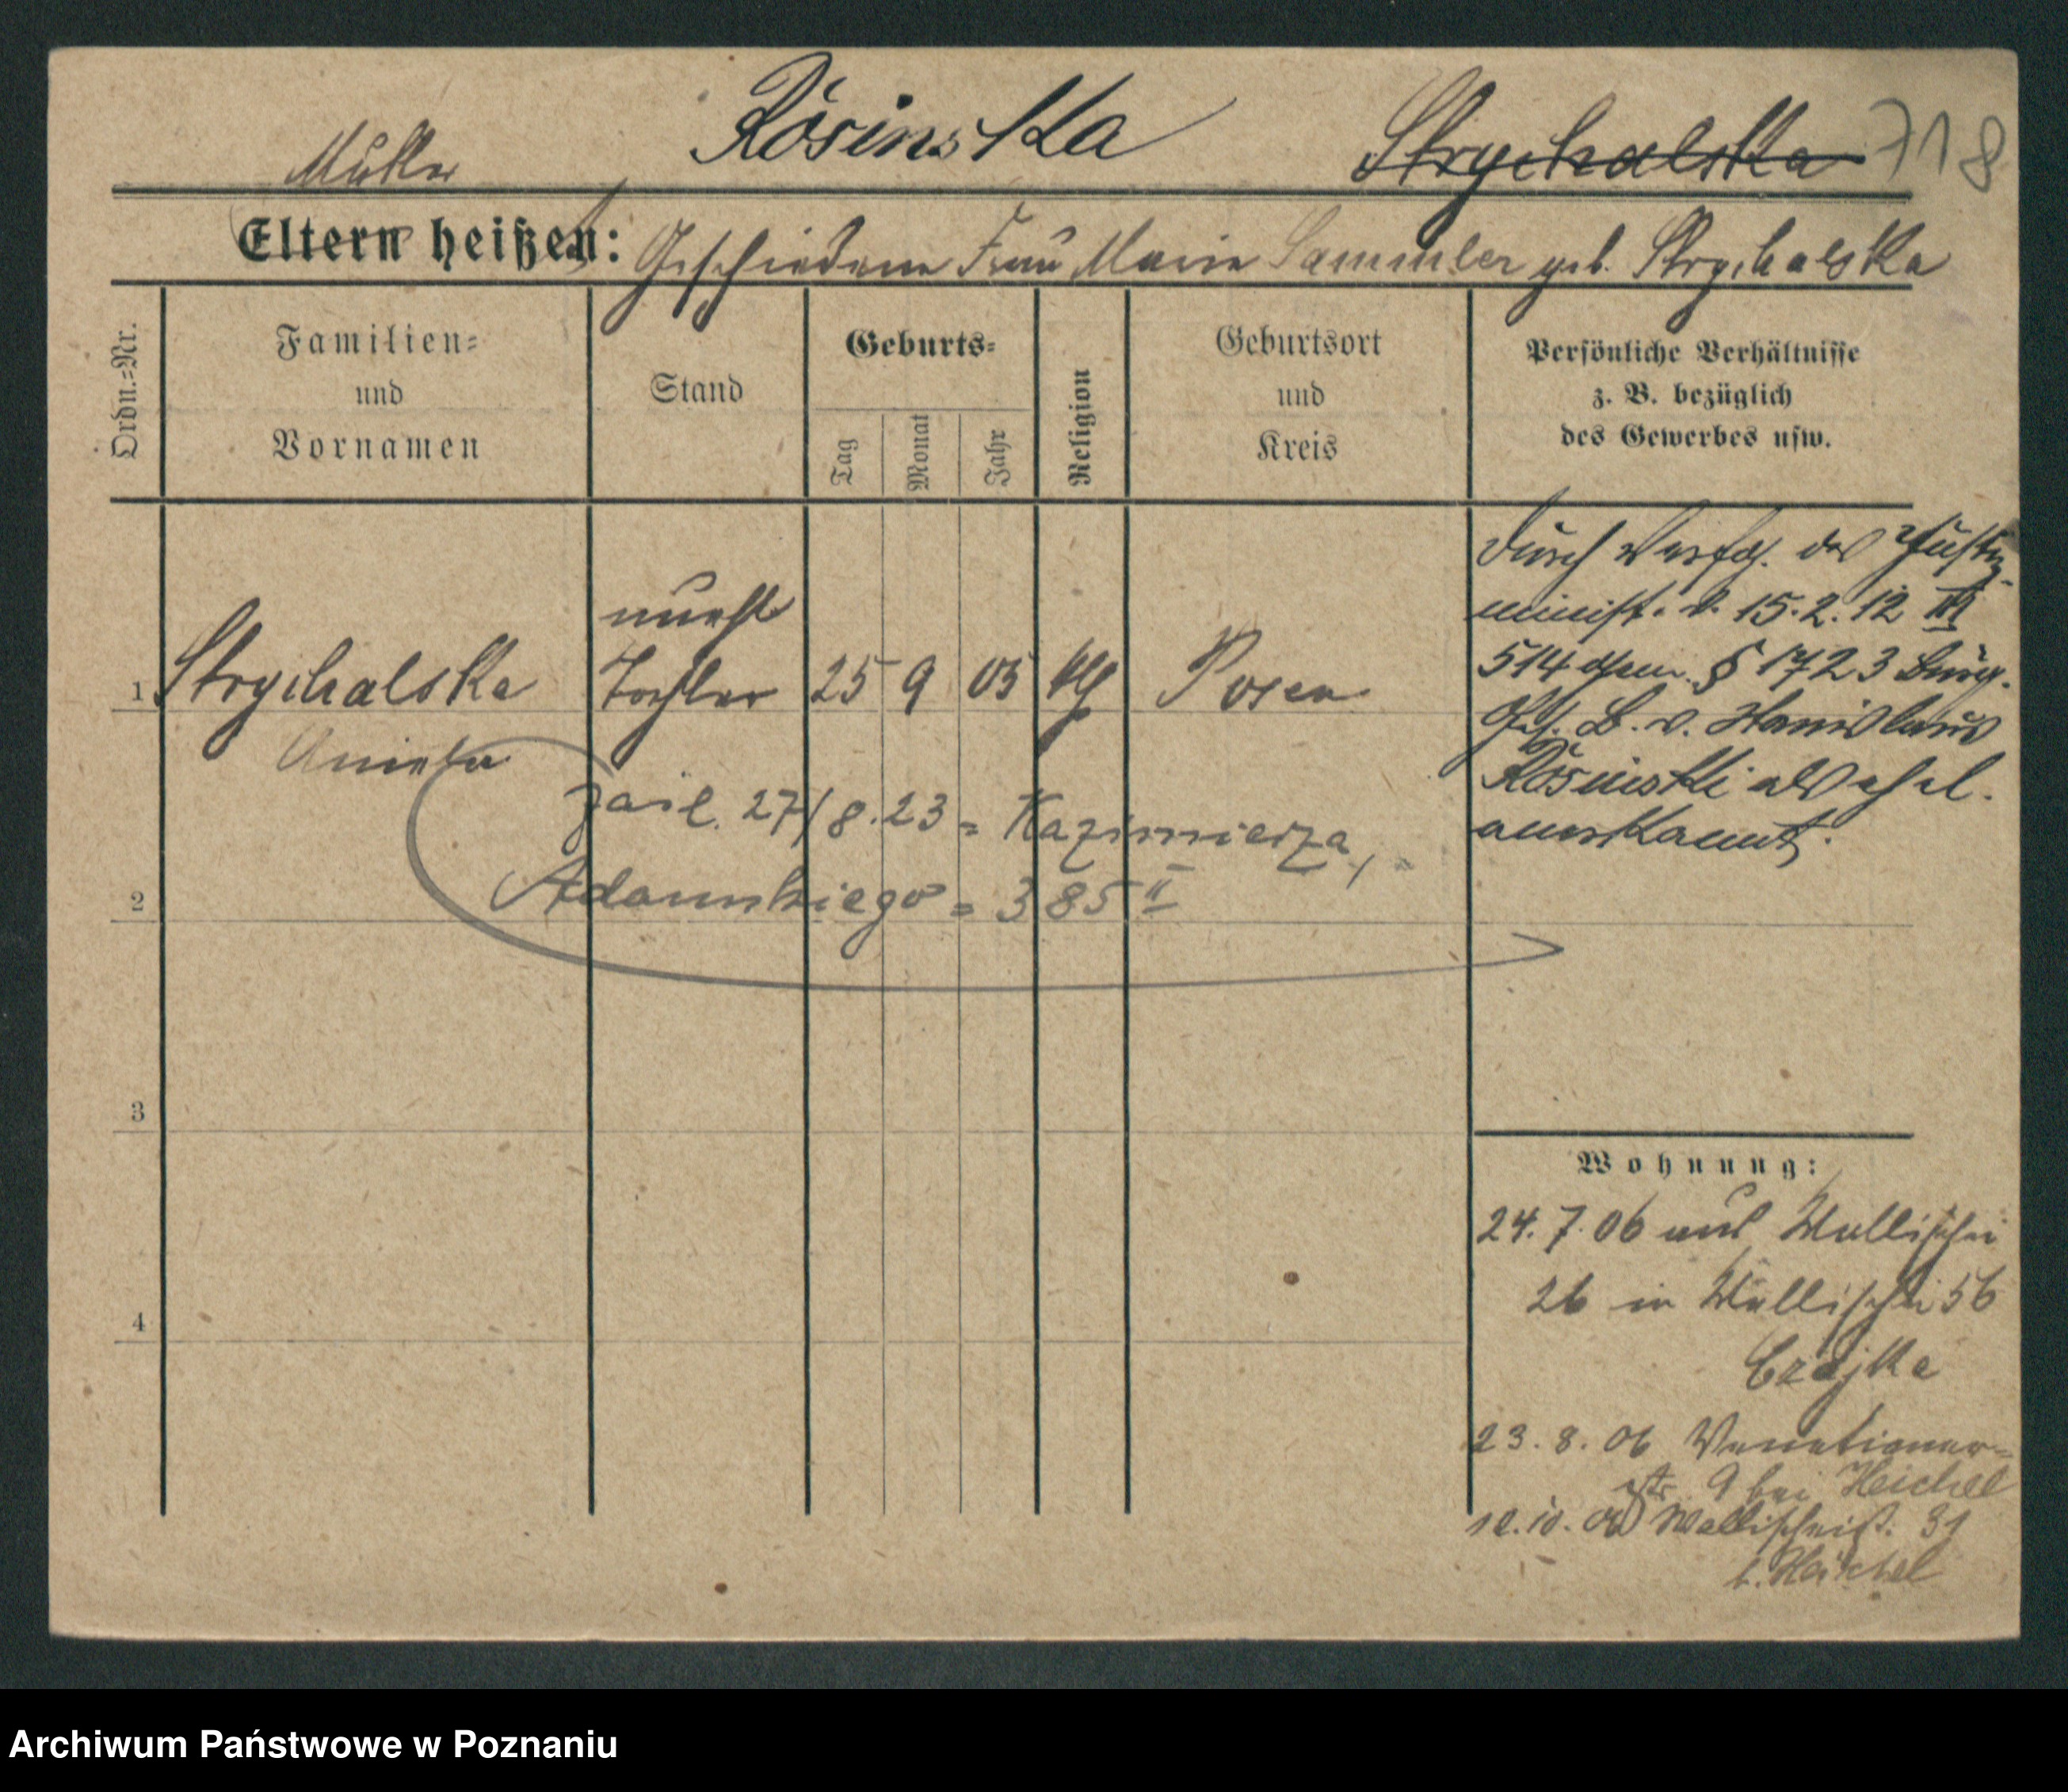 Rosinska Strychalska 718
Mutter
Eltern heißen: Geschiedene Frau Marie Sammler geb. Strychalska
Ordn.=Nr.
Familien=
und
Vornamen
Stand
Geburts=
Tag
Monat
Jahr
Religion
Geburtsort
und
Kreis
Persönliche Verhältnisse
z. B. bezüglich
des Gewerbes usw.
1 Strychalska
Aniela
unehl
Tochter
25 9 05 kth Posen
Durch Verfg. des Justiz-
minist. v. 15.2.12 III
514 gem. § 1723 Bürg.
Ges. B. v. Stanislaus
Rosinski als ehel.
anerkannt.
zaśl. 27/8.23 = Kazimierza
Adamskiego = 385 II
2
3
4
Wohnung:
24.7.06 aus Wallischei
26 in Wallischei 56
Czajka
23.8.06 Venetianer-
str 9 bei Heichel
12.10.06 Wallischeistr. 31
b. Heichel
Archiwum Państwowe w Poznaniu